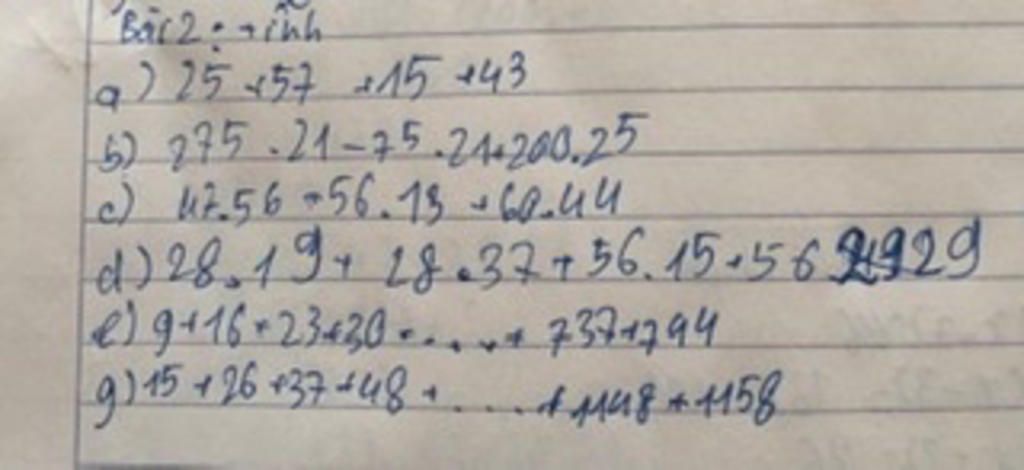 Bài 2: tính
a) 25 + 57 + 15 + 43
b) 275 . 21 - 75 . 21 + 200 . 25
c) 47 . 56 + 56 . 13 + 60 . 44
d) 28 . 19 + 28 . 37 + 56 . 15 + 56 29
e) 9 + 16 + 23 + 30 + ..... + 737 + 744
g) 15 + 26 + 37 + 48 + ..... + 1148 + 1158